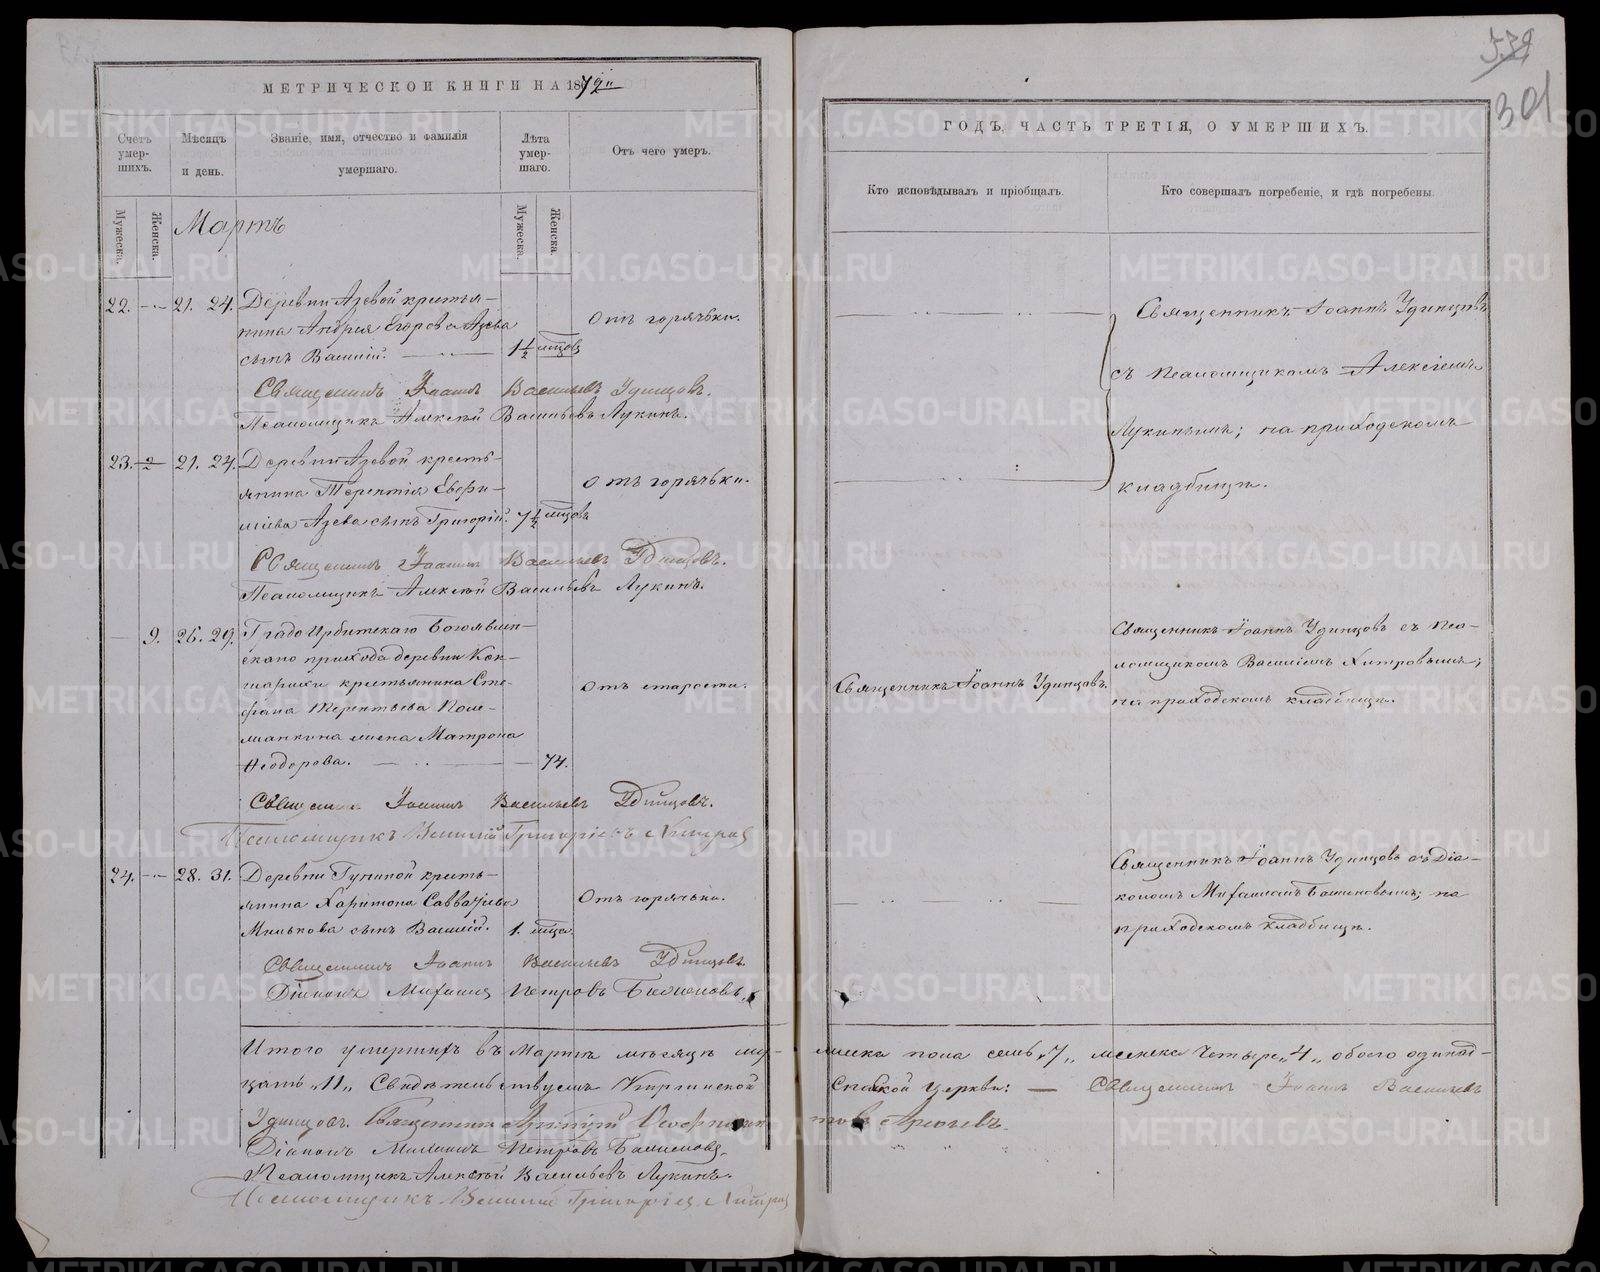 МЕТРИЧЕСКОЙ КНИГИ НА 1872й
Счетъ умер-шихъ.
Мѣсяцъ и день.
Званіе, имя, отчество и фамилія умершаго.
Лѣта умер-шаго.
Отъ чего умеръ.
Мужеска.
Женска.
Мартъ
Мужеска.
Женска.
22. 21. 24. Деревни Азевой крестья-
нина Андрея Егорова Азева
сынъ Василій. 1½ мцовъ
Отъ горячьки.
Священникъ Іоаннъ Васильевъ Удинцовъ.
Псаломщикъ Алексѣй Васильевъ Лукинъ.
23. 21. 24. Деревни Азевой кресть-
янина Терентія Евфи-
міева Азева сынъ Григорій. 7½ мцовъ
Отъ горячьки.
Священникъ Іоаннъ Васильевъ Удинцовъ.
Псаломщикъ Алексѣй Васильевъ Лукинъ.
9. 26. 29. Градо Ирбитскаго Богоявлен-
скаго прихода деревни Кок-
шарихи крестьянина Сте-
фана Терентьева
жена Матрона
Ѳеодорова. 74.
Отъ старости.
Священникъ Іоаннъ Васильевъ Удинцовъ.
Псаломщикъ Василій Григоріевъ Хитровъ
24. 28. 31. Деревни Гуниной кресть-
янина Харитона Савватіева
Милькова сынъ Василій. 1. мца.
Отъ горячьки.
Священникъ Іоаннъ Васильевъ Удинцовъ.
Діаконъ Михаилъ Петровъ
Итого умершихъ въ Мартѣ мѣсяцѣ му-
цать „11„ Свидѣтельствуемъ
Удинцовъ. Священникъ
Діаконъ Михаилъ Петровъ
Псаломщикъ Алексѣй Васильевъ Лукинъ.
Псаломщикъ Василій Григоріевъ Хитровъ
301
ГОДЪ, ЧАСТЬ ТРЕТІЯ, О УМЕРШИХЪ.
Кто исповѣдывалъ и пріобщалъ.
Кто совершалъ погребеніе, и гдѣ погребены.
Священникъ Іоаннъ Удинцовъ
съ псаломщикомъ Алексѣемъ
Лукинымъ; на приходскомъ
кладбищѣ.
Священникъ Іоаннъ Удинцовъ.
Священникъ Іоаннъ Удинцовъ съ пса-
ломщикомъ Василіемъ Хитровымъ;
на приходскомъ кладбищѣ.
Священникъ Іоаннъ Удинцовъ съ Діа-
кономъ Михаиломъ на
приходскомъ кладбищѣ.
жеска пола семь „7„ женска четыре „4„ обоего одинад-
Спаской церкви: Священникъ Іоаннъ Васильевъ
METRIKI.GASO-URAL.RU